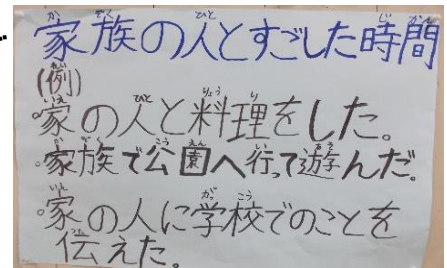 家族の人とすごした時間
(例)
。家の人と料理をした。
・家族で公園へ行って遊んだ。
。家の人に学校でのことを
伝えた。